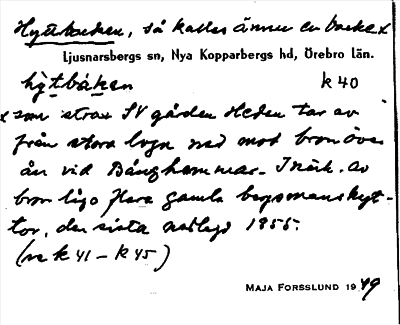 Hyttbacken, så kallas ännu en backe x
Ljusnarsbergs sn, Nya Kopparbergs hd, Örebro län.
hỳtbáken k 40
x som strax SV gården Heden tar av
från stora lvgn ned mot bron över
ån vid Bånghammar. I närh. av
bron låg flera gamla bergsmanshyt-
tor, den sista nedlagd 1855.
(se k 41 – k 45)
MAJA FORSSLUND 1949